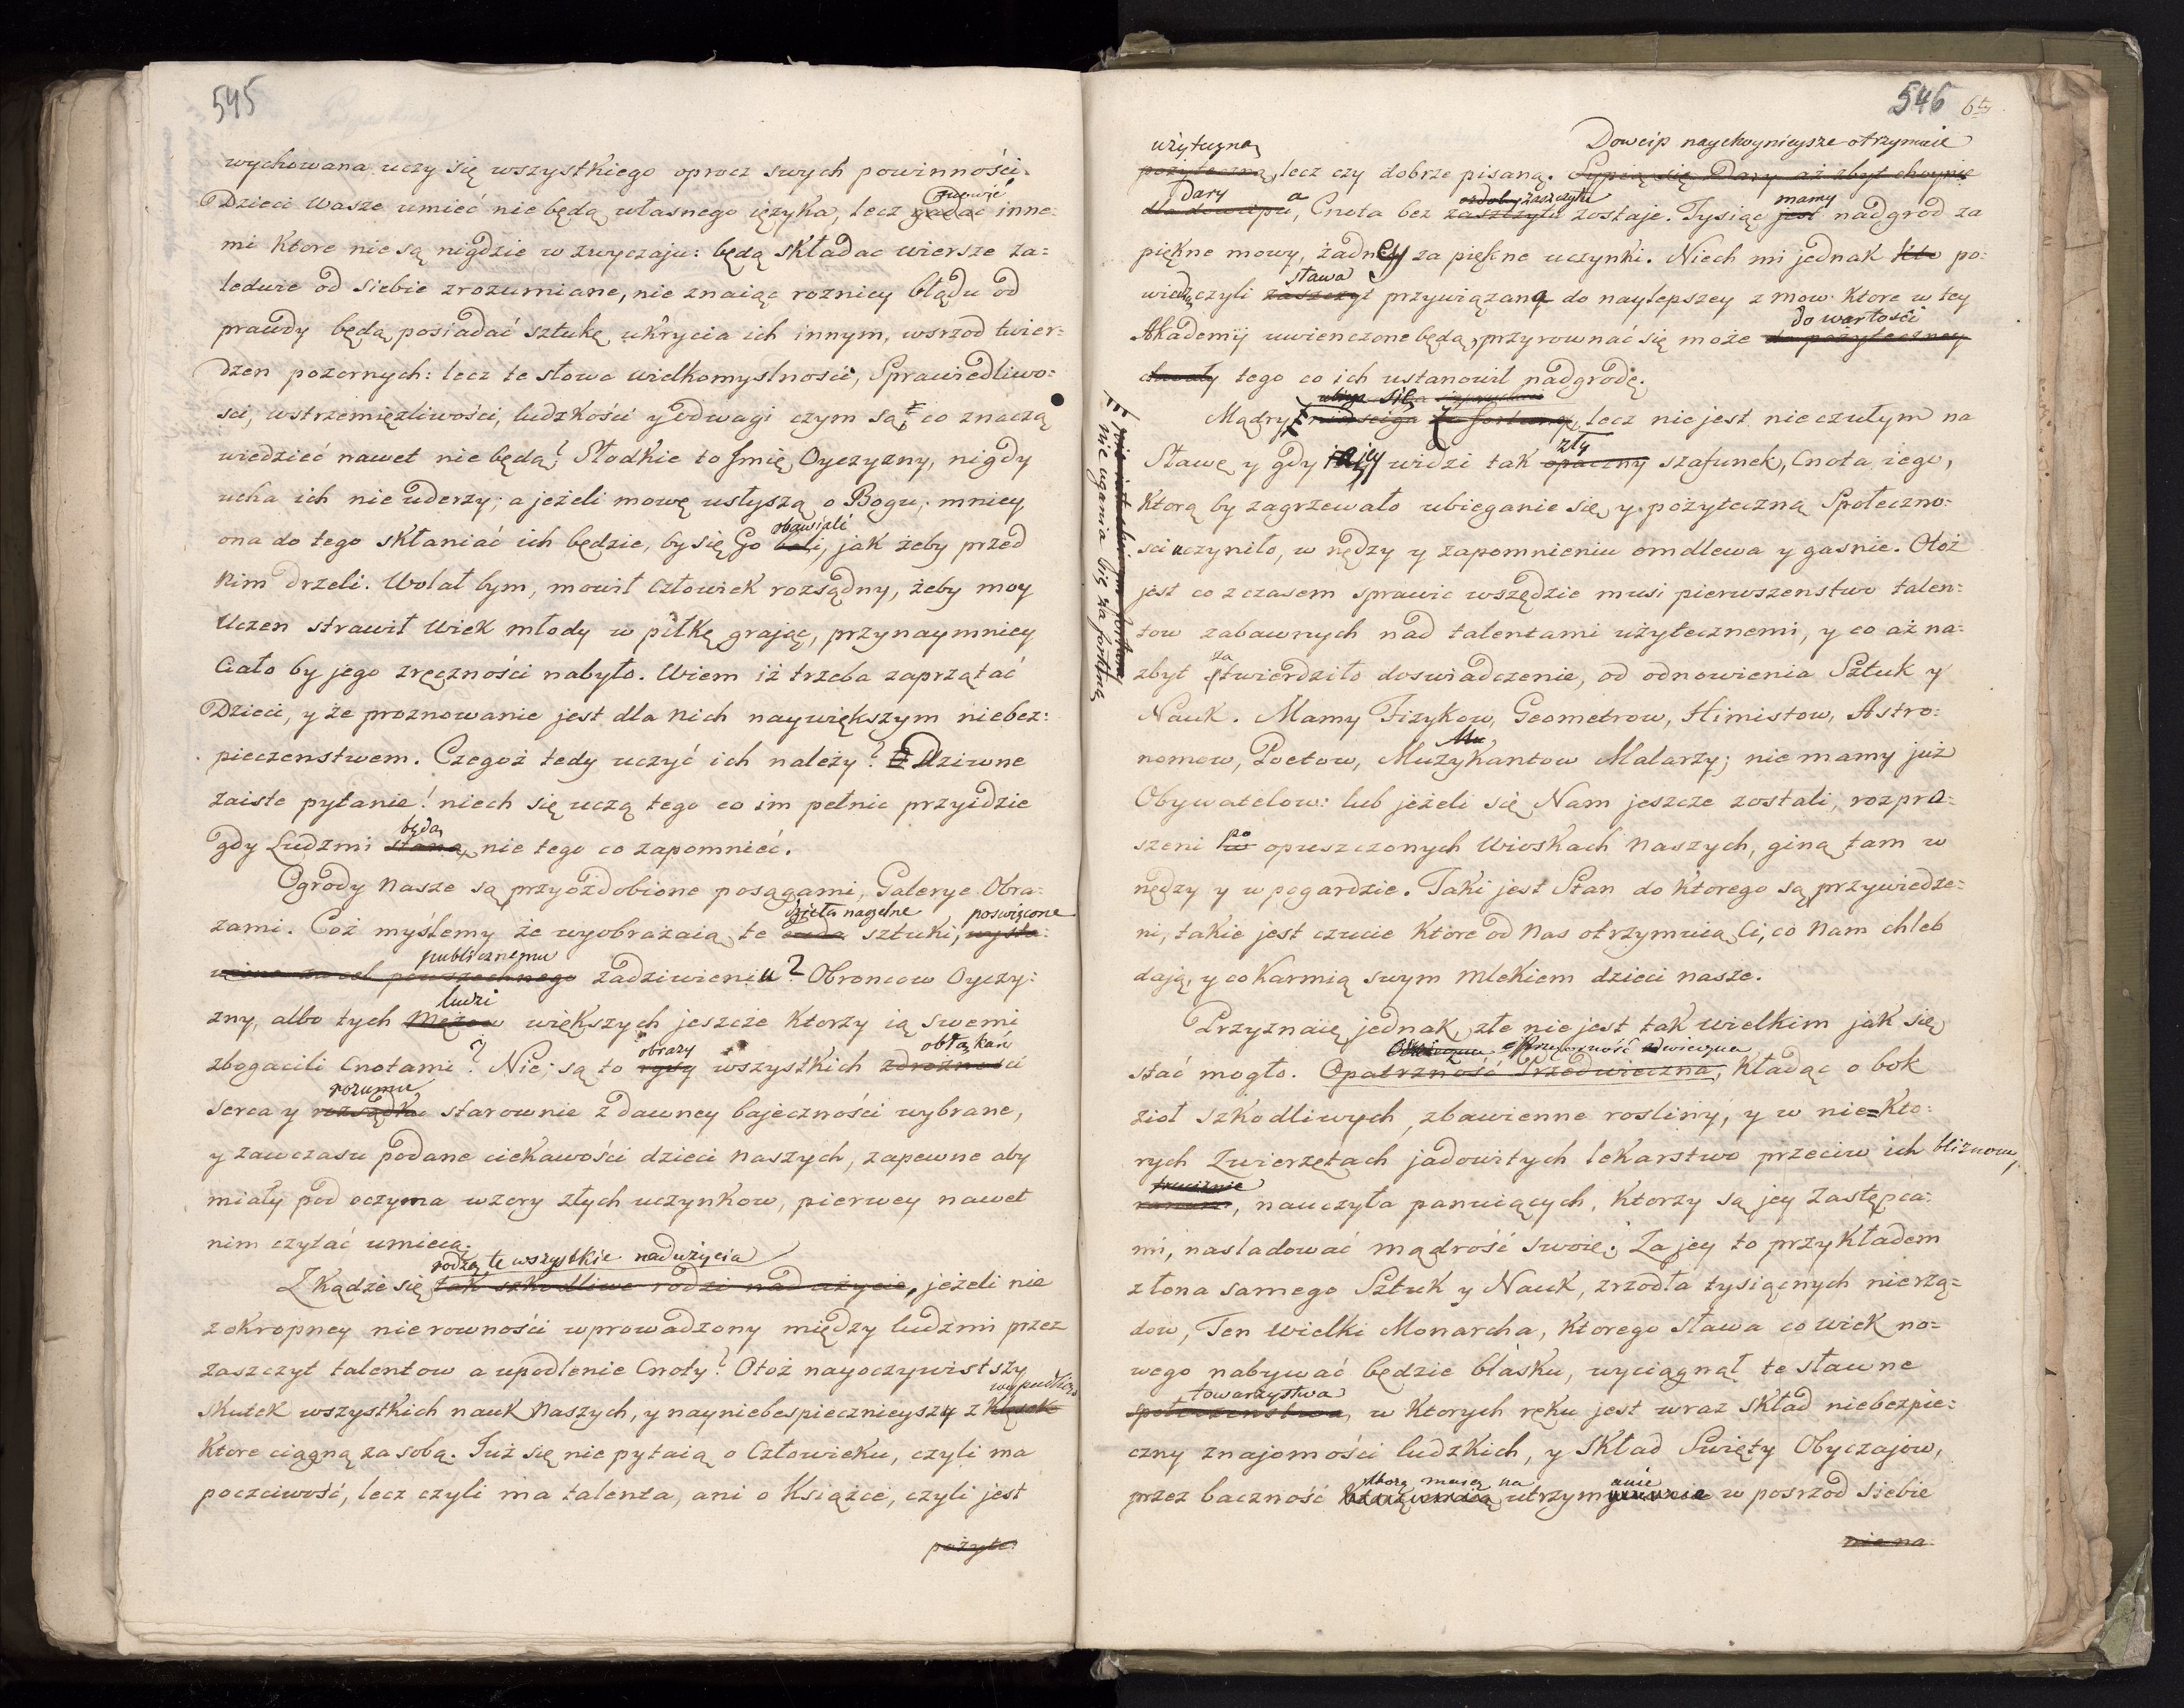 545
wychowana uczy się wszystkiego oprocz swych powinności.
mowić
Dzieci Wasze umieć nie będą własnego ięzyka, lecz gadać inne=
mi ktore nie są nigdzie w zwyczaju: będą składac wiersze za=
ledwie od siebie zrozumiane, nie znaiąc roznicy błędu od
prawdy będą posiadać sztukę ukrycia ich innym, wsrzod twier=
dzen pozornych: lecz te słowa wielkomyslności, Sprawiedliwo=
sci, wstrzemięzliwości, ludzkości y odwagi czym są? co znaczą
wiedzieć nawet nie będą? Słodkie to Jmię Oyczyzny, nigdy
ucha ich nie uderzy; a jeżeli mowę usłyszą o Bogu; mniey
obawiali
ona do tego skłaniać ich będzie, by się Go bali, jak żeby przed
Nim drzeli. Wolał bym, mowił człowiek rozsądny, żeby moy
Uczen strawił Wiek młody w piłkę grając, przynaymniey
Ciało by jego zręczności nabyło. Wiem iż trzeba zaprzątać
Dzieci, y że proznowanie jest dla nich naywiększym niebez=
pieczenstwem. Czegoż tedy uczyć ich należy? Dziwne
zaiste pytanie! niech się uczą tego co im pełnic przyidzie
będą
gdy Ludzmi staną, nie tego co zapomnieć.
Ogrody Nasze są przyozdobione posągami, Galerye Obra=
dzieła naczelne poswięcone
zami. Coż myślemy że wyobrazaią te cuda sztuki, wysta=
publicznemu
wione na cel powszechnego zadziwieniu? Obroncow Oyczy=
ludzi
zny, albo tych Mężow większych jeszcze ktorzy ią swemi
obrazy obłąkań
zbogacili Cnotami? Nie; są to rysy wszystkich zdrożności
rozumu
serca y rozsądku starownie z dawney bajeczności wybrane,
y zawczasu podane ciekawości dzieci naszych, zapewne aby
miały pod oczyma wzory złych uczynkow, pierwey nawet
nim czytać umieią.
rodzą te wszystkie nadużycia
Zkądże się tak szkodliwe rodzi nad użycie, jeżeli nie
z okropney nierowności wprowadzony między ludzmi przez
zaszczyt talentow a upodlenie Cnoty? Otoż nayoczywistszy
skutek wszystkich nauk Naszych, y nayniebespiecznieyszy z klęsek
ktore ciągną za sobą. Już się nie pytaią o Człowieku, czyli ma
poczciwość, lecz czyli ma talenta, ani o Książce, czyli jest
pożyte=
546
użyteczną Dowcip nayhoynieysze otrzymuie
pożyteczną, lecz czy dobrze pisaną. Sypią się Dary aż zbyt choynie
dary a ozdoby zaszczytu mamy
dla dowcipu, Cnota bez zaszczytu zostaje. Tysiąc jest nadgrod za
piękne mowy, żadney za piękne uczynki. Niech mi jednak kto po=
sława
wie czyli zaszczyt przywiązana do naylepszey z mow ktore w tey
do wartości
Akademij uwienczone będą, przyrownać się może do pożyteczney
chwały tego co ich ustanowił nadgrodę.
Mądry lecz nie jest nieczułym na
nie ugania się za fortuną
zły
Sławę y gdy jey widzi tak opaczny szafunek, Cnota iego,
ktorą by zagrzewało ubieganie się y pożyteczną Społeczno=
sci uczyniło, w nędzy y zapomnieniu omdlewa y gasnie. Otoż
jest co z czasem sprawic wszędzie musi pierwszenstwo talen=
tow zabawnych nad talentami użytecznemi, y co aż na=
za
zbyt stwierdziło doswiadczenie, od odnowienia Sztuk y
Nauk. Mamy Fizykow, Geometrow, Himistow, Astro=
Mu
nomow, Poetow, Muzykantow Malarzy; nie mamy już
Obywatelow: lub jeżeli się Nam jeszcze zostali, rozpro=
po
szeni w opuszczonych Wioskach Naszych, giną tam w
nędzy y w pogardzie. Taki jest Stan do ktorego są przywiedze=
ni, takie jest czucie ktore od Nas otrzymuią Ci, co Nam chleb
dają, y co karmią swym Mlekiem dzieci nasze.
Przyznaię jednak, złe nie jest tak wielkim jak się
Opatrzność odwieczna
stać mogło. Opatrzność Przedwieczna, kładąc o bok
zioł szkodliwych, zbawienne rosliny, y w nie=kto=
rych Zwierzętach jadowitych lekarstwo przeciw ich bliznom,
truciznie
ranom, nauczyła panuiących, ktorzy są jey Zastępca=
mi, nasladować mądrość swoię. Za jey to przykładem
z łona samego Sztuk y Nauk, zrzodła tysiącnych nierzą=
dow, Ten Wielki Monarcha, ktorego sława co wiek no=
wego nabywać będzie blasku, wyciągnął te sławne
towarzystwa
społeczenstwa, w ktorych ręku jest wraz skład niebezpie=
czny znajomości ludzkich, y skład Swięty Obyczajow,
ktorą maią na anie
przez baczność utrzym w posrzod siebie